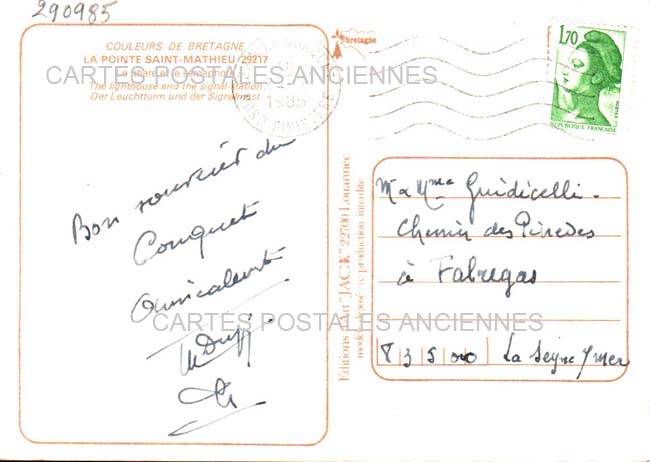 290985
COULEURS DE BRETAGNE
LA POINTE SAINT-MATHIEU 29217
Le phare et le sémaphore
The lighthouse and the signal-station
Der Leuchtturm und der Signalmast
CARTES POSTALES ANCIENNES
Bon souvenir du
Conquet
Amicalement
bretagne
1985
FINISTERE
1,70
POSTES
REPUBLIQUE FRANÇAISE
Editions d'Art "JACK" 22700 Louannec
modèle déposé - reproduction interdite
M & Mme Guidicelli
Chemin des Pinèdes
à Fabregas
83500 La Seyne s/mer
CARTES POSTALES ANCIENNES